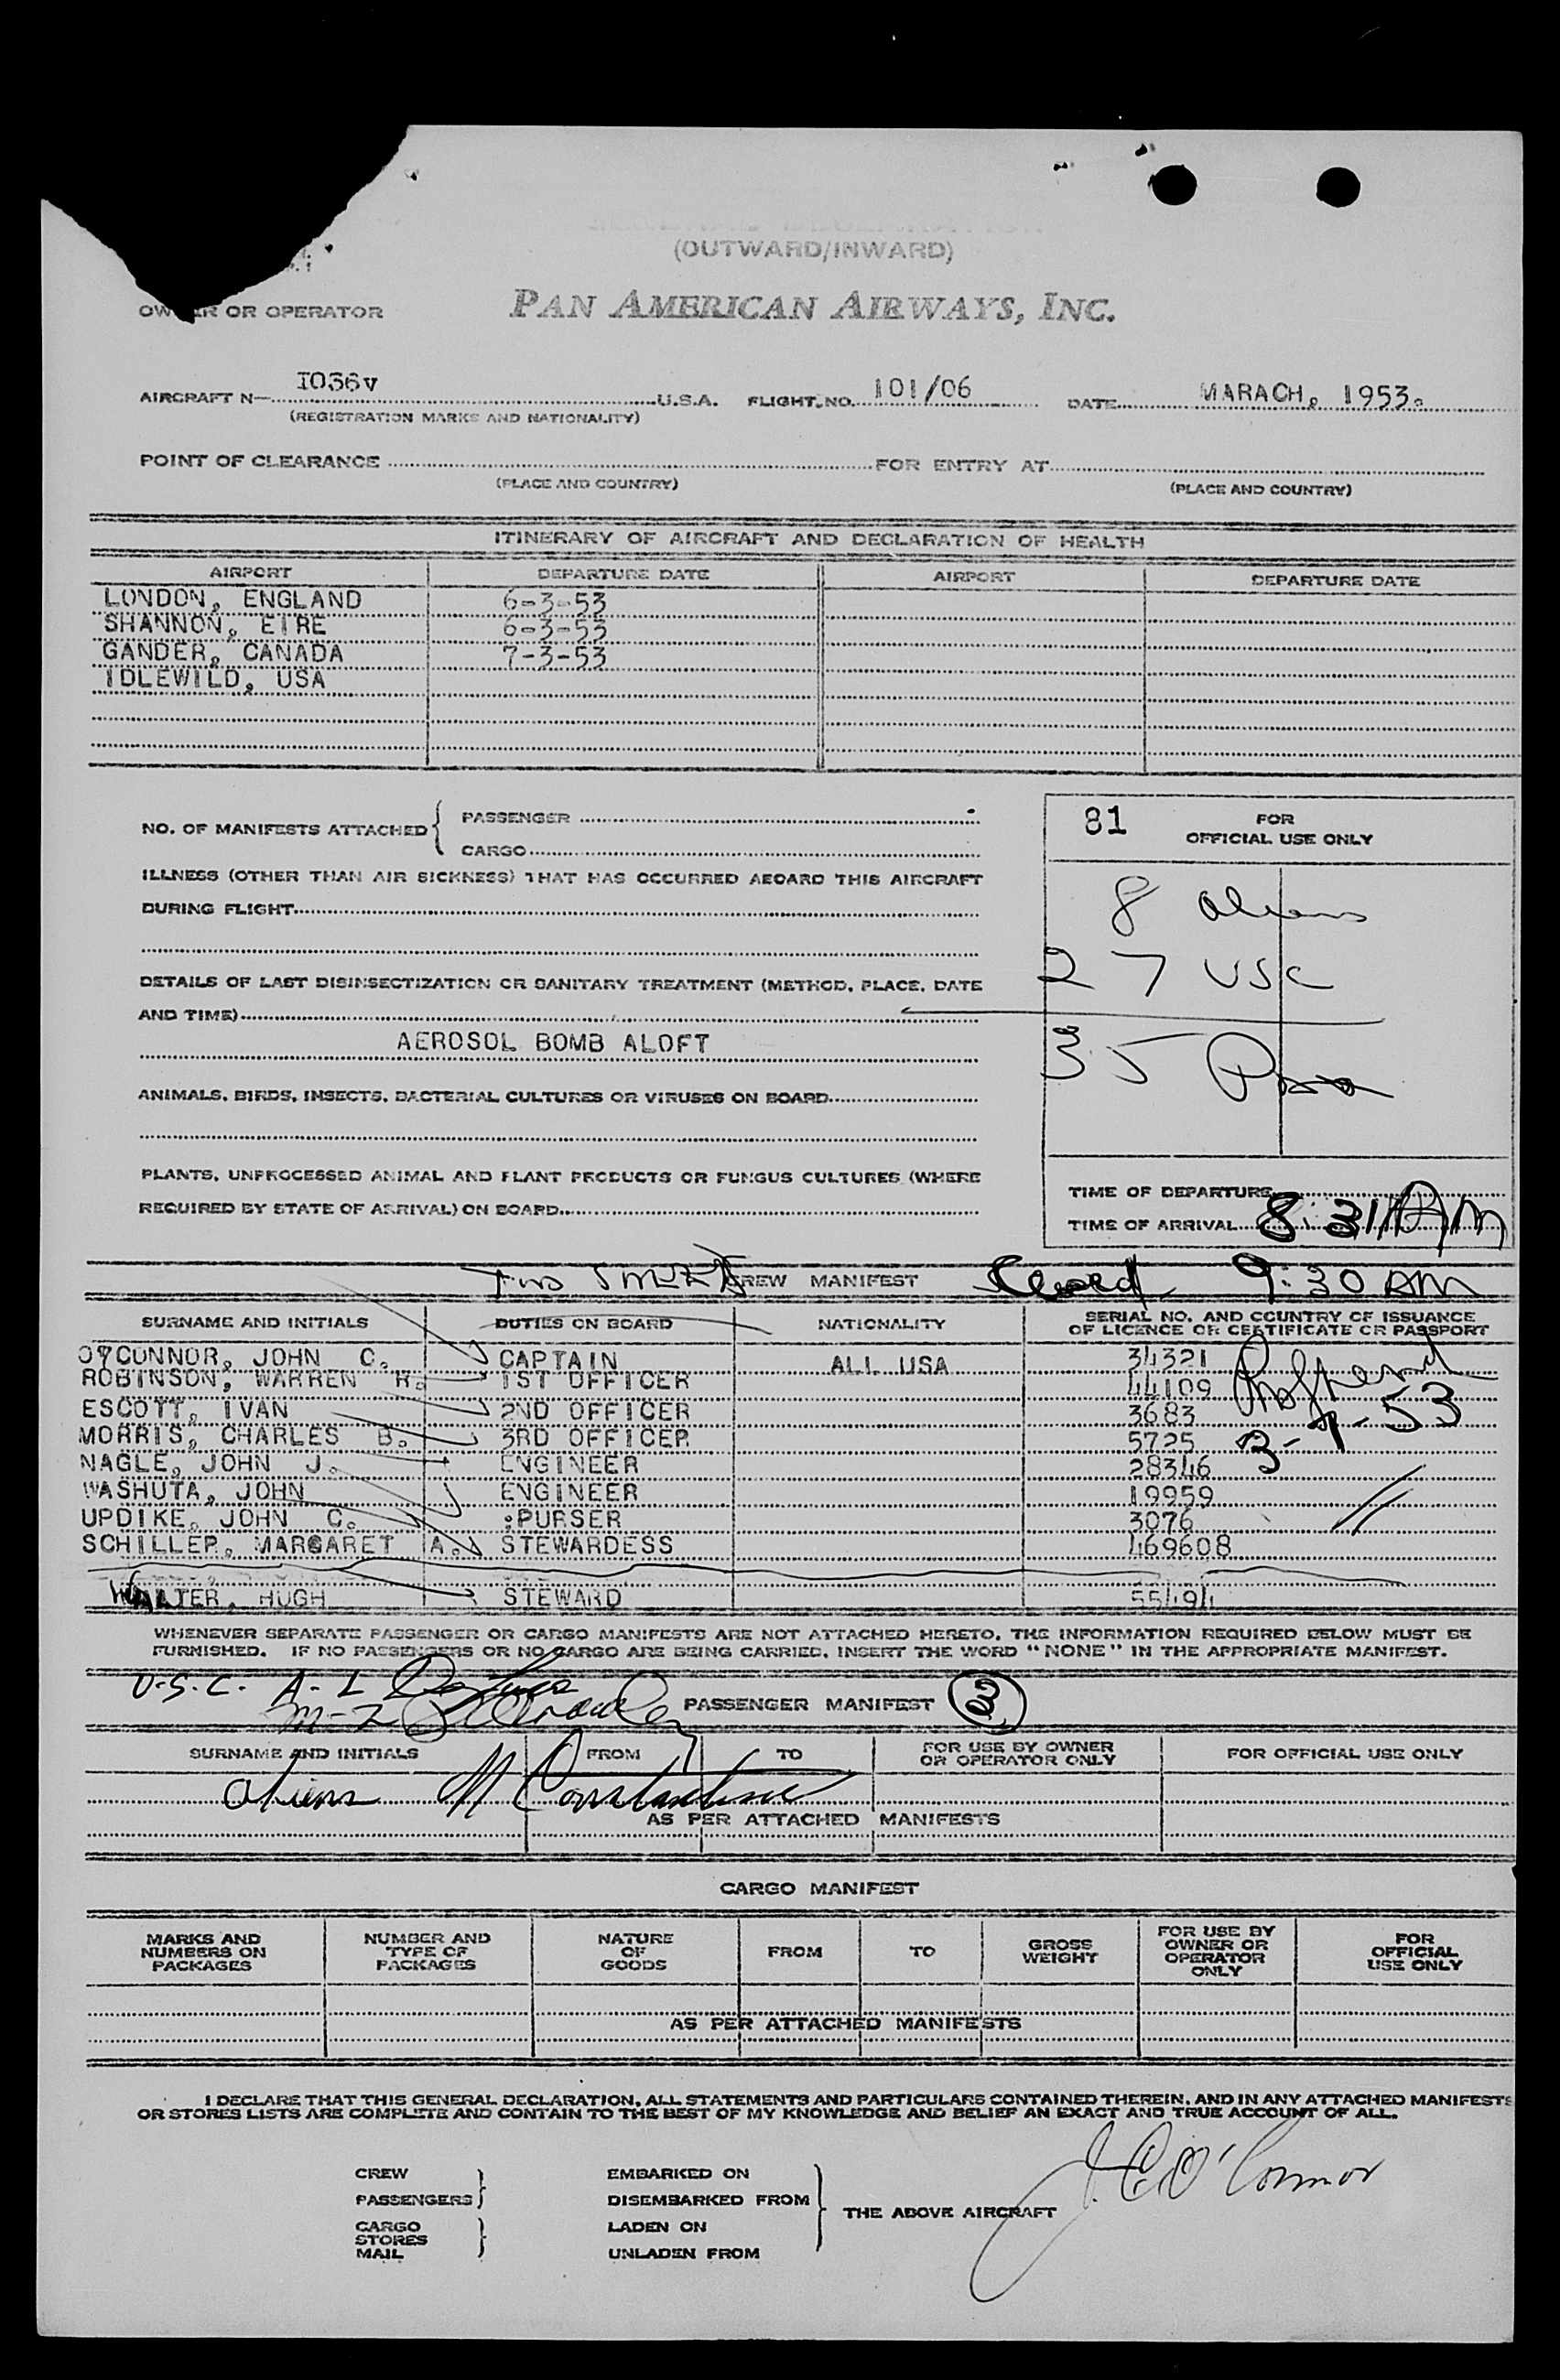 (OUTWARD/INWARD)
OWNER OR OPERATOR PAN AMERICAN AIRWAYS, INC.
AIRCRAFT N— 1036V U.S.A. FLIGHT. NO. 101/06 DATE MARACH, 1953.
(REGISTRATION MARKS AND NATIONALITY)
POINT OF CLEARANCE FOR ENTRY AT
(PLACE AND COUNTRY) (PLACE AND COUNTRY)
ITINERARY OF AIRCRAFT AND DECLARATION OF HEALTH
AIRPORT DEPARTURE DATE AIRPORT DEPARTURE DATE
LONDON, ENGLAND 6-3-53
SHANNON, EIRE 6-3-53
GANDER, CANADA 7-3-53
IDLEWILD, USA
NO. OF MANIFESTS ATTACHED { PASSENGER
CARGO
ILLNESS (OTHER THAN AIR SICKNESS) THAT HAS OCCURRED ABOARD THIS AIRCRAFT
DURING FLIGHT
DETAILS OF LAST DISINSECTIZATION OR SANITARY TREATMENT (METHOD, PLACE, DATE
AND TIME)
AEROSOL BOMB ALOFT
ANIMALS, BIRDS, INSECTS, BACTERIAL CULTURES OR VIRUSES ON BOARD
PLANTS, UNPROCESSED ANIMAL AND PLANT PRODUCTS OR FUNGUS CULTURES (WHERE
REQUIRED BY STATE OF ARRIVAL) ON BOARD
81 FOR
OFFICIAL USE ONLY
8 aliens
27 USC
35 Pass
TIME OF DEPARTURE
TIME OF ARRIVAL 8:31 AM
CREW MANIFEST 9:30 AM
SURNAME AND INITIALS DUTIES ON BOARD NATIONALITY SERIAL NO. AND COUNTRY OF ISSUANCE
OF LICENCE OR CERTIFICATE OR PASSPORT
O'CONNOR, JOHN C. CAPTAIN ALL USA 34321
ROBINSON, WARREN H. 1ST OFFICER 44109
ESCOTT, IVAN 2ND OFFICER 3683
MORRIS, CHARLES B. 3RD OFFICER 5725
NAGLE, JOHN J. ENGINEER 28346
WASHUTA, JOHN ENGINEER 19959
UPDIKE, JOHN C. :PURSER 3076
SCHILLER, MARGARET A. STEWARDESS 469608
WALTER, HUGH STEWARD 55494
WHENEVER SEPARATE PASSENGER OR CARGO MANIFESTS ARE NOT ATTACHED HERETO, THE INFORMATION REQUIRED BELOW MUST BE
FURNISHED. IF NO PASSENGERS OR NO CARGO ARE BEING CARRIED, INSERT THE WORD "NONE" IN THE APPROPRIATE MANIFEST.
U.S.C. A-L
M-Z
PASSENGER MANIFEST 3
SURNAME AND INITIALS FROM TO FOR USE BY OWNER
OR OPERATOR ONLY FOR OFFICIAL USE ONLY
aliens M Constantine
AS PER ATTACHED MANIFESTS
CARGO MANIFEST
MARKS AND
NUMBERS ON
PACKAGES NUMBER AND
TYPE OF
PACKAGES NATURE
OF
GOODS FROM TO GROSS
WEIGHT FOR USE BY
OWNER OR
OPERATOR
ONLY FOR
OFFICIAL
USE ONLY
AS PER ATTACHED MANIFESTS
I DECLARE THAT THIS GENERAL DECLARATION, ALL STATEMENTS AND PARTICULARS CONTAINED THEREIN, AND IN ANY ATTACHED MANIFESTS
OR STORES LISTS ARE COMPLETE AND CONTAIN TO THE BEST OF MY KNOWLEDGE AND BELIEF AN EXACT AND TRUE ACCOUNT OF ALL.
CREW
PASSENGERS
CARGO
STORES
MAIL
EMBARKED ON
DISEMBARKED FROM
LADEN ON
UNLADEN FROM
THE ABOVE AIRCRAFT J. C. O'Connor